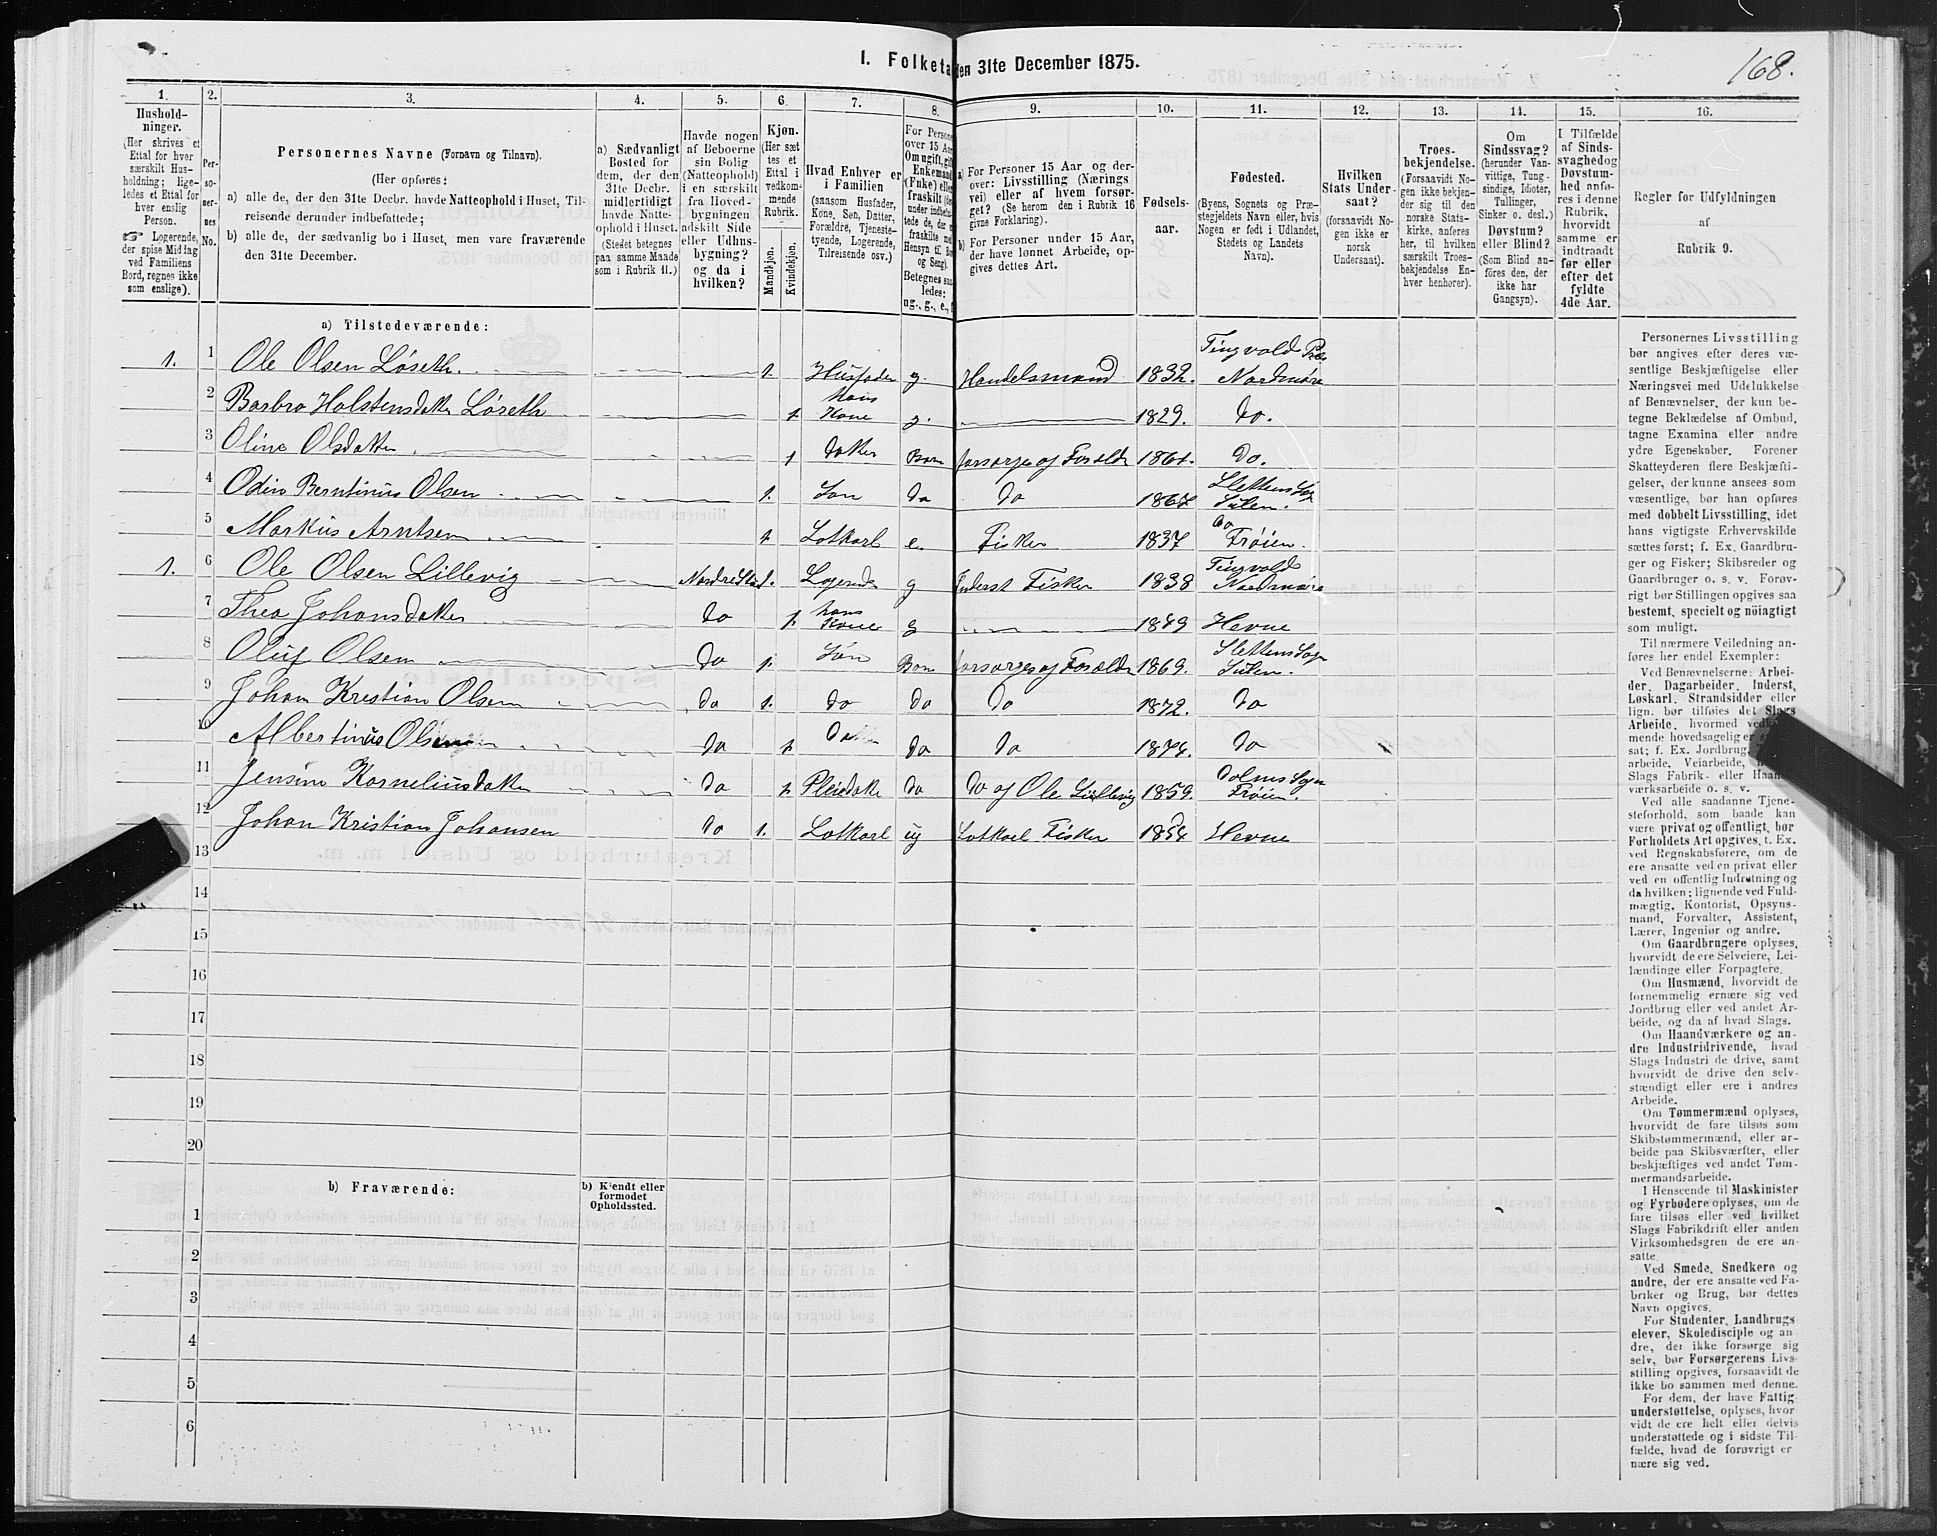 168.
1. Folketa den 31te December 1875.
1. 2. 3. 4. 5. 6. 7. 8. 9. 10. 11. 12. 13. 14. 15. 16.
Hushold-
ninger.
(Her skrives et
Ettal for hver
særskilt Hus-
holdning; lige-
ledes et Ettal for
hver enslig
Person.
☞ Logerende,
der spise Middag
ved Familiens
Bord, regnes ikke
som enslige).
Per-
so-
ner-
nes
No.
Personernes Navne (Fornavn og Tilnavn).
(Her opføres:
a) alle de, der den 31te Decbr. havde Natteophold i Huset, Til-
reisende derunder indbefattede;
b) alle de, der sædvanlig bo i Huset, men vare fraværende
den 31te December.
a) Sædvanligt
Bosted for
dem, der den
31te Decbr.
midlertidigt
havde Natte-
ophold i Huset.
(Stedet betegnes
paa samme Maade
som i Rubrik 11.)
Havde nogen
af Beboerne
sin Bolig
(Natteophold)
i en særskilt
fra Hoved-
bygningen
adskilt Side
eller Udhus-
bygning?
og da i
hvilken?
Kjøn.
(Her sæt
tes et
Ettal i
vedkom-
mende
Rubrik.
Mandkjøn.
Kvindekjøn.
Hvad Enhver er
i Familien
(saasom Husfader,
Kone, Søn, Datter,
Forældre, Tjeneste-
tyende, Logerende,
Tilreisende osv.)
For Persone
over 15 Aa
Om ugift, gif
Enkemand
(Enke) elle
fraskilt
under indbe
tede de, de
fraskilte
Hensyn til Bo
og Seng).
Betegnes saa
ledes:
ug., g., e.,
a) For Personer 15 Aar og der-
over: Livsstilling (Nærings
vei) eller af hvem forsør-
get? (Se herom den i Rubrik 16
givne Forklaring).
b) For Personer under 15 Aar,
der have lønnet Arbeide, op-
gives dettes Art.
Fødsels-
aar.
Fødested.
(Byens, Sognets og Præ-
stegjeldets Navn eller, hvis
Nogen er født i Udlandet,
Stedets og Landets
Navn).
Hvilken
Stats Under-
saat?
(forsaavidt No-
gen ikke er
norsk
Undersaat).
Troes-
bekjendelse.
(Forsaavidt No-
gen ikke bekjen-
der sig til den
norske Stats-
kirke, anføres
her, til hvilken
særskilt Troes-
bekjendelse En-
hver henhører).
Om
Sindssvag?
(herunder Van-
vittige, Tung-
sindige, Idioter,
Tullinger,
Sinker o. desl.)
Døvstum?
eller Blind?
(Som Blind an-
føres den, der
ikke har
Gangsyn).
I Tilfælde
af Sinds-
svaghedog
Døvstum-
hed anfø-
res i denne
Rubrik,
hvorvidt
samme er
indtraadt
før eller
efter det
fyldte
4de Aar.
Regler for Udfyldningen
af
Rubrik 9.
a) Tilstedeværende:
1. 1 Ole Olsen Løseth. 1. Husfader g. Handelsmand 1832. Tingvold Nordmøre
2 Barbro Holstensdatter Løseth 1. hans Kone g. 1829. do.
3 Oline Olsdatter 1 datter Barn forsørges af Foræld 1861. do.
4 Odin Berntinus Olsen 1. Søn do do 1867 Slettens Sogn Sulen.
5 Markus Arntsen 1. Lotkarl e. Fisker 1837 do Frøien.
1. 6 Ole Olsen Lillevig Logerende g Inderst Fisker 1838 Tingvold Nordmøre
7 Thea Johansdatter do 1. hans Kone g 1849 Hevne
8 Oluf Olsen do 1. Søn Barn forsørges af Foræld 1869. Slettens Sogn Sulen.
9 Johan Kristian Olsen do 1. do do do 1872. do
10 Albertinus do 1. do do 1874. do
11 Jensine Korneliusdatter do 1. Pleiedatter do do af Ole Lillevig 1859. Dolms Sogn Frøien.
12 Johan Kristian Johansen do 1. Lotkarl ug Lotkarl Fisker 1854 Hevne
13
14
15
16
17
18
19
20
b) Fraværende:
b) Kjendt eller
formodet
Opholdssted.
1
2
3
4
5
6
Personernes Livsstilling
bør angives efter deres væ-
sentlige Beskjæftigelse eller
Næringsvei med Udelukkelse
af Benævnelser, der kun be-
tegne Beklædelse af Ombud,
tagne Examina eller andre
ydre Egenskaber. Forener
Skatteyderen flere Beskjæfti-
gelser, der kunne ansees som
væsentlige, bør han opføres
med dobbelt Livsstilling, idet
hans vigtigste Erhvervskilde
sættes først; f. Ex. Gaardbru-
ger og Fisker; Skibsreder og
Gaardbruger o. s. v. Forøv-
rigt bør Stillingen opgives saa
bestemt, specielt og nöiagtigt
som muligt.
Til nærmere Veiledning an-
føres her endel Exempler:
Ved Benævnelserne: Arbei-
der, Dagarbeider, Inderst,
Løskarl, Strandsidder eller
lign. bør tilføies det Slags
Arbeide, hvormed
mende hovedsagelig er
sat; f. Ex. Jordbrug,
arbeide, Veiarbeide,
Slags Fabrik- eller
værksarbeide o. s. v.
Ved alle saadanne Tjene-
steforhold, som baade kan
være privat og offentligt, bør
Forholdets Art opgives, t. Ex.
ved Regnskabsførere, om de
ere ansatte ved en privat eller
ved en offentlig Indretning og
da hvilken; lignende ved Fuld-
mægtig, Kontorist, Opsyns-
mand, Forvalter, Assistent,
Lærer, Ingeniør og andre.
Om Gaardbrugere oplyses,
hvorvidt de ere Selveiere, Lei-
lændinge eller Forpagtere.
Om Husmænd, hvorvidt de
fornemmelig ernære sig ved
Jordbrug eller ved andet Ar-
beide, og da af hvad Slags.
Om Haandværkere og an-
dre Industridrivende, hvad
Slags Industri de drive, samt
hvorvidt de drive den selv-
stændigt eller ere i andres
Arbeide.
Om Tømmermænd oplyses,
hvorvidt de fare tilsøs som
Skibstømmermænd, eller ar-
beide paa Skibsværfter, eller
beskjæftiges ved andet Tøm-
mermandsarbeide.
I Henseende til Maskinister
og Fyrbødere oplyses, om de
fare tilsøs eller ved hvilket
Slags Fabrikdrift eller anden
Virksomhedsgren de ere an-
satte.
Ved Smede, Snedkere og
andre, der ere ansatte ved Fa-
briker og Brug, bør dettes
Navn opgives.
For Studenter, Landbrugs
elever, Skoledisciple og an
dre, der ikke forsørge sig
selv, bør Forsørgerens Livs-
stilling opgives, forsaavidt de
ikke bo sammen med denne.
For dem, der have Fattig-
understøttelse, oplyses, hvor
vidt de ere helt eller delvis
understøttede og i sidste Til-
fælde, hvad de forøvrigt er
nære sig ved.